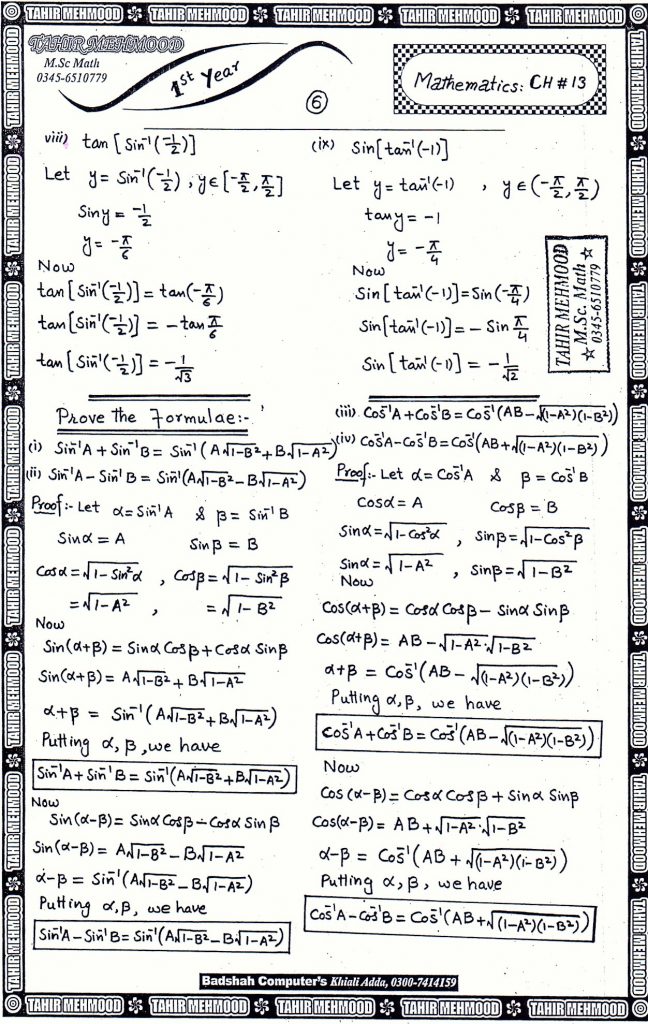 TAHIR MEHMOOD TAHIR MEHMOOD TAHIR MEHMOOD TAHIR MEHMOOD TAHIR MEHMOOD
TAHIR MEHMOOD
M.Sc Math
0345-6510779
1st Year
6
Mathematics: CH # 13
viii) tan [Sin⁻¹(-1/2)]
Let y = Sin⁻¹(-1/2), y ∈ [-π/2, π/2]
Sin y = -1/2
y = -π/6
Now
tan [Sin⁻¹(-1/2)] = tan(-π/6)
tan [Sin⁻¹(-1/2)] = -tan π/6
tan [Sin⁻¹(-1/2)] = -1/√3
(ix) Sin[tan⁻¹(-1)]
Let y = tan⁻¹(-1) , y ∈ (-π/2, π/2)
tan y = -1
y = -π/4
Now
Sin [tan⁻¹(-1)] = Sin(-π/4)
Sin[tan⁻¹(-1)] = - Sin π/4
Sin [tan⁻¹(-1)] = -1/√2
TAHIR MEHMOOD
M.Sc. Math
☆ 0345-6510779 ☆
Prove the Formulae:-
(i) Sin⁻¹A + Sin⁻¹B = Sin⁻¹(A√1-B² + B√1-A²)
(ii) Sin⁻¹A - Sin⁻¹B = Sin⁻¹(A√1-B² - B√1-A²)
Proof:- Let α = Sin⁻¹A & β = Sin⁻¹B
Sinα = A Sinβ = B
Cosα = √1-Sin²α , Cosβ = √1-Sin²β
= √1-A² , = √1-B²
Now
Sin(α+β) = Sinα Cosβ + Cosα Sinβ
Sin(α+β) = A√1-B² + B√1-A²
α+β = Sin⁻¹(A√1-B² + B√1-A²)
Putting α, β, we have
Sin⁻¹A + Sin⁻¹B = Sin⁻¹(A√1-B² + B√1-A²)
Now
Sin(α-β) = Sinα Cosβ - Cosα Sinβ
Sin(α-β) = A√1-B² - B√1-A²
α-β = Sin⁻¹(A√1-B² - B√1-A²)
Putting α, β, we have
Sin⁻¹A - Sin⁻¹B = Sin⁻¹(A√1-B² - B√1-A²)
(iii) Cos⁻¹A + Cos⁻¹B = Cos⁻¹(AB - √(1-A²)(1-B²))
(iv) Cos⁻¹A - Cos⁻¹B = Cos⁻¹(AB + √(1-A²)(1-B²))
Proof:- Let α = Cos⁻¹A & β = Cos⁻¹B
Cosα = A Cosβ = B
Sinα = √1-Cos²α , Sinβ = √1-Cos²β
Sinα = √1-A² , Sinβ = √1-B²
Now
Cos(α+β) = Cosα Cosβ - Sinα Sinβ
Cos(α+β) = AB - √1-A² · √1-B²
α+β = Cos⁻¹(AB - √(1-A²)(1-B²))
Putting α, β, we have
Cos⁻¹A + Cos⁻¹B = Cos⁻¹(AB - √(1-A²)(1-B²))
Now
Cos(α-β) = Cosα Cosβ + Sinα Sinβ
Cos(α-β) = AB + √1-A² · √1-B²
α-β = Cos⁻¹(AB + √(1-A²)(1-B²))
Putting α, β, we have
Cos⁻¹A - Cos⁻¹B = Cos⁻¹(AB + √(1-A²)(1-B²))
Badshah Computer's Khiali Adda, 0300-7414159
TAHIR MEHMOOD TAHIR MEHMOOD TAHIR MEHMOOD TAHIR MEHMOOD TAHIR MEHMOOD
TAHIR MEHMOOD TAHIR MEHMOOD TAHIR MEHMOOD TAHIR MEHMOOD TAHIR MEHMOOD TAHIR MEHMOOD TAHIR MEHMOOD
TAHIR MEHMOOD TAHIR MEHMOOD TAHIR MEHMOOD TAHIR MEHMOOD TAHIR MEHMOOD TAHIR MEHMOOD TAHIR MEHMOOD